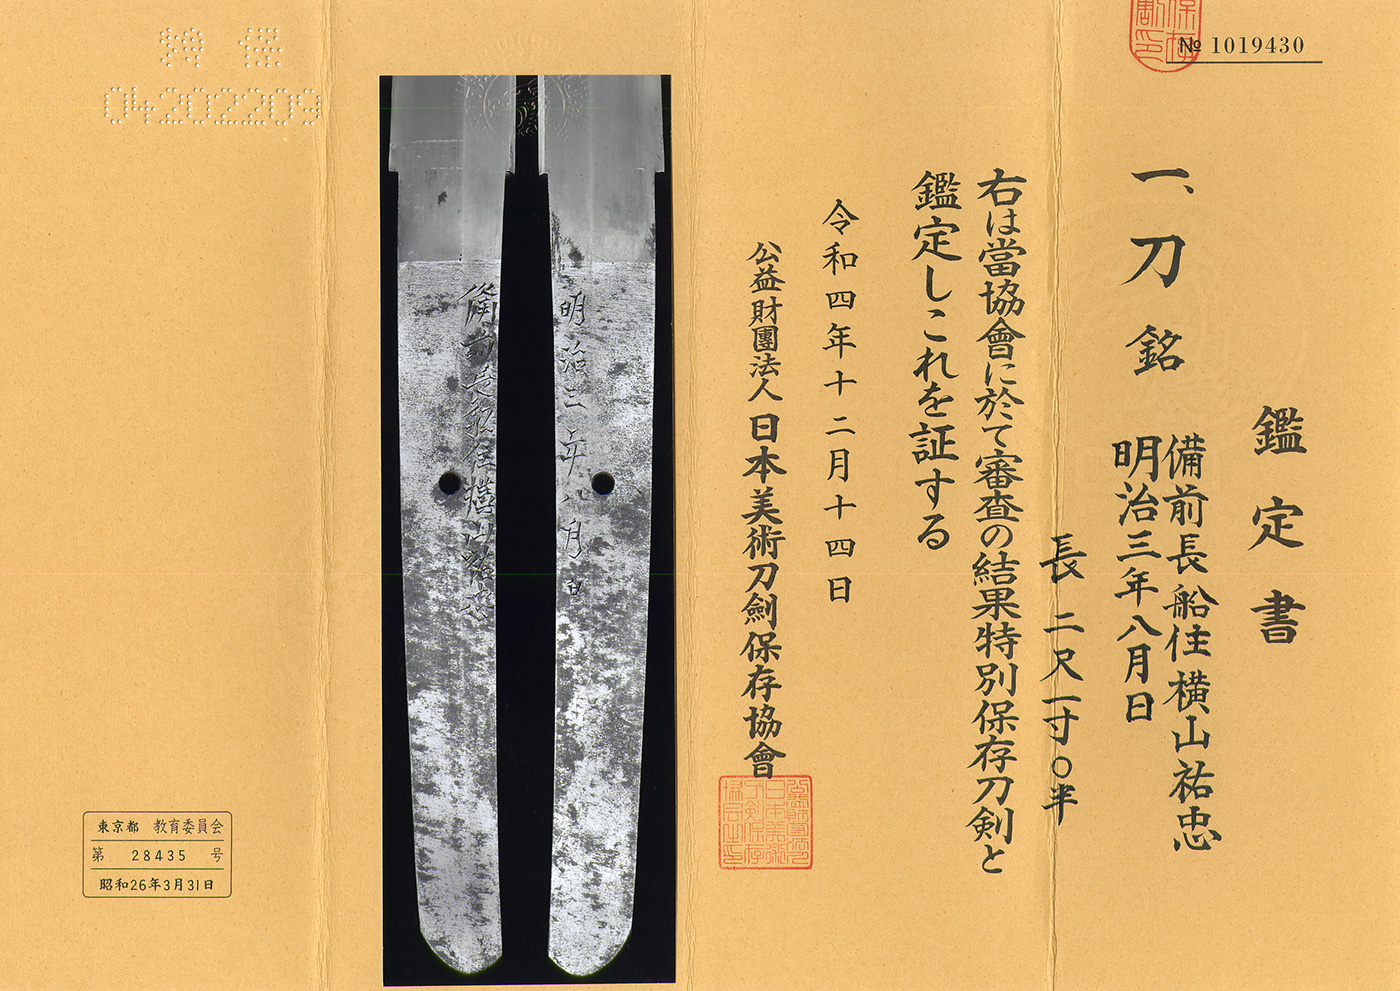 № 1019430
鑑定書
一、刀 銘 備前長船住横山祐忠
明治三年八月日
長 二尺一寸〇半
右は當協會に於て審査の結果特別保存刀剣と
鑑定しこれを証する
令和四年十二月十四日
公益財團法人 日本美術刀劍保存協會
明治三年八月日
備前長船住横山祐忠
04202209
東京都 教育委員会
第 28435 号
昭和26年3月31日